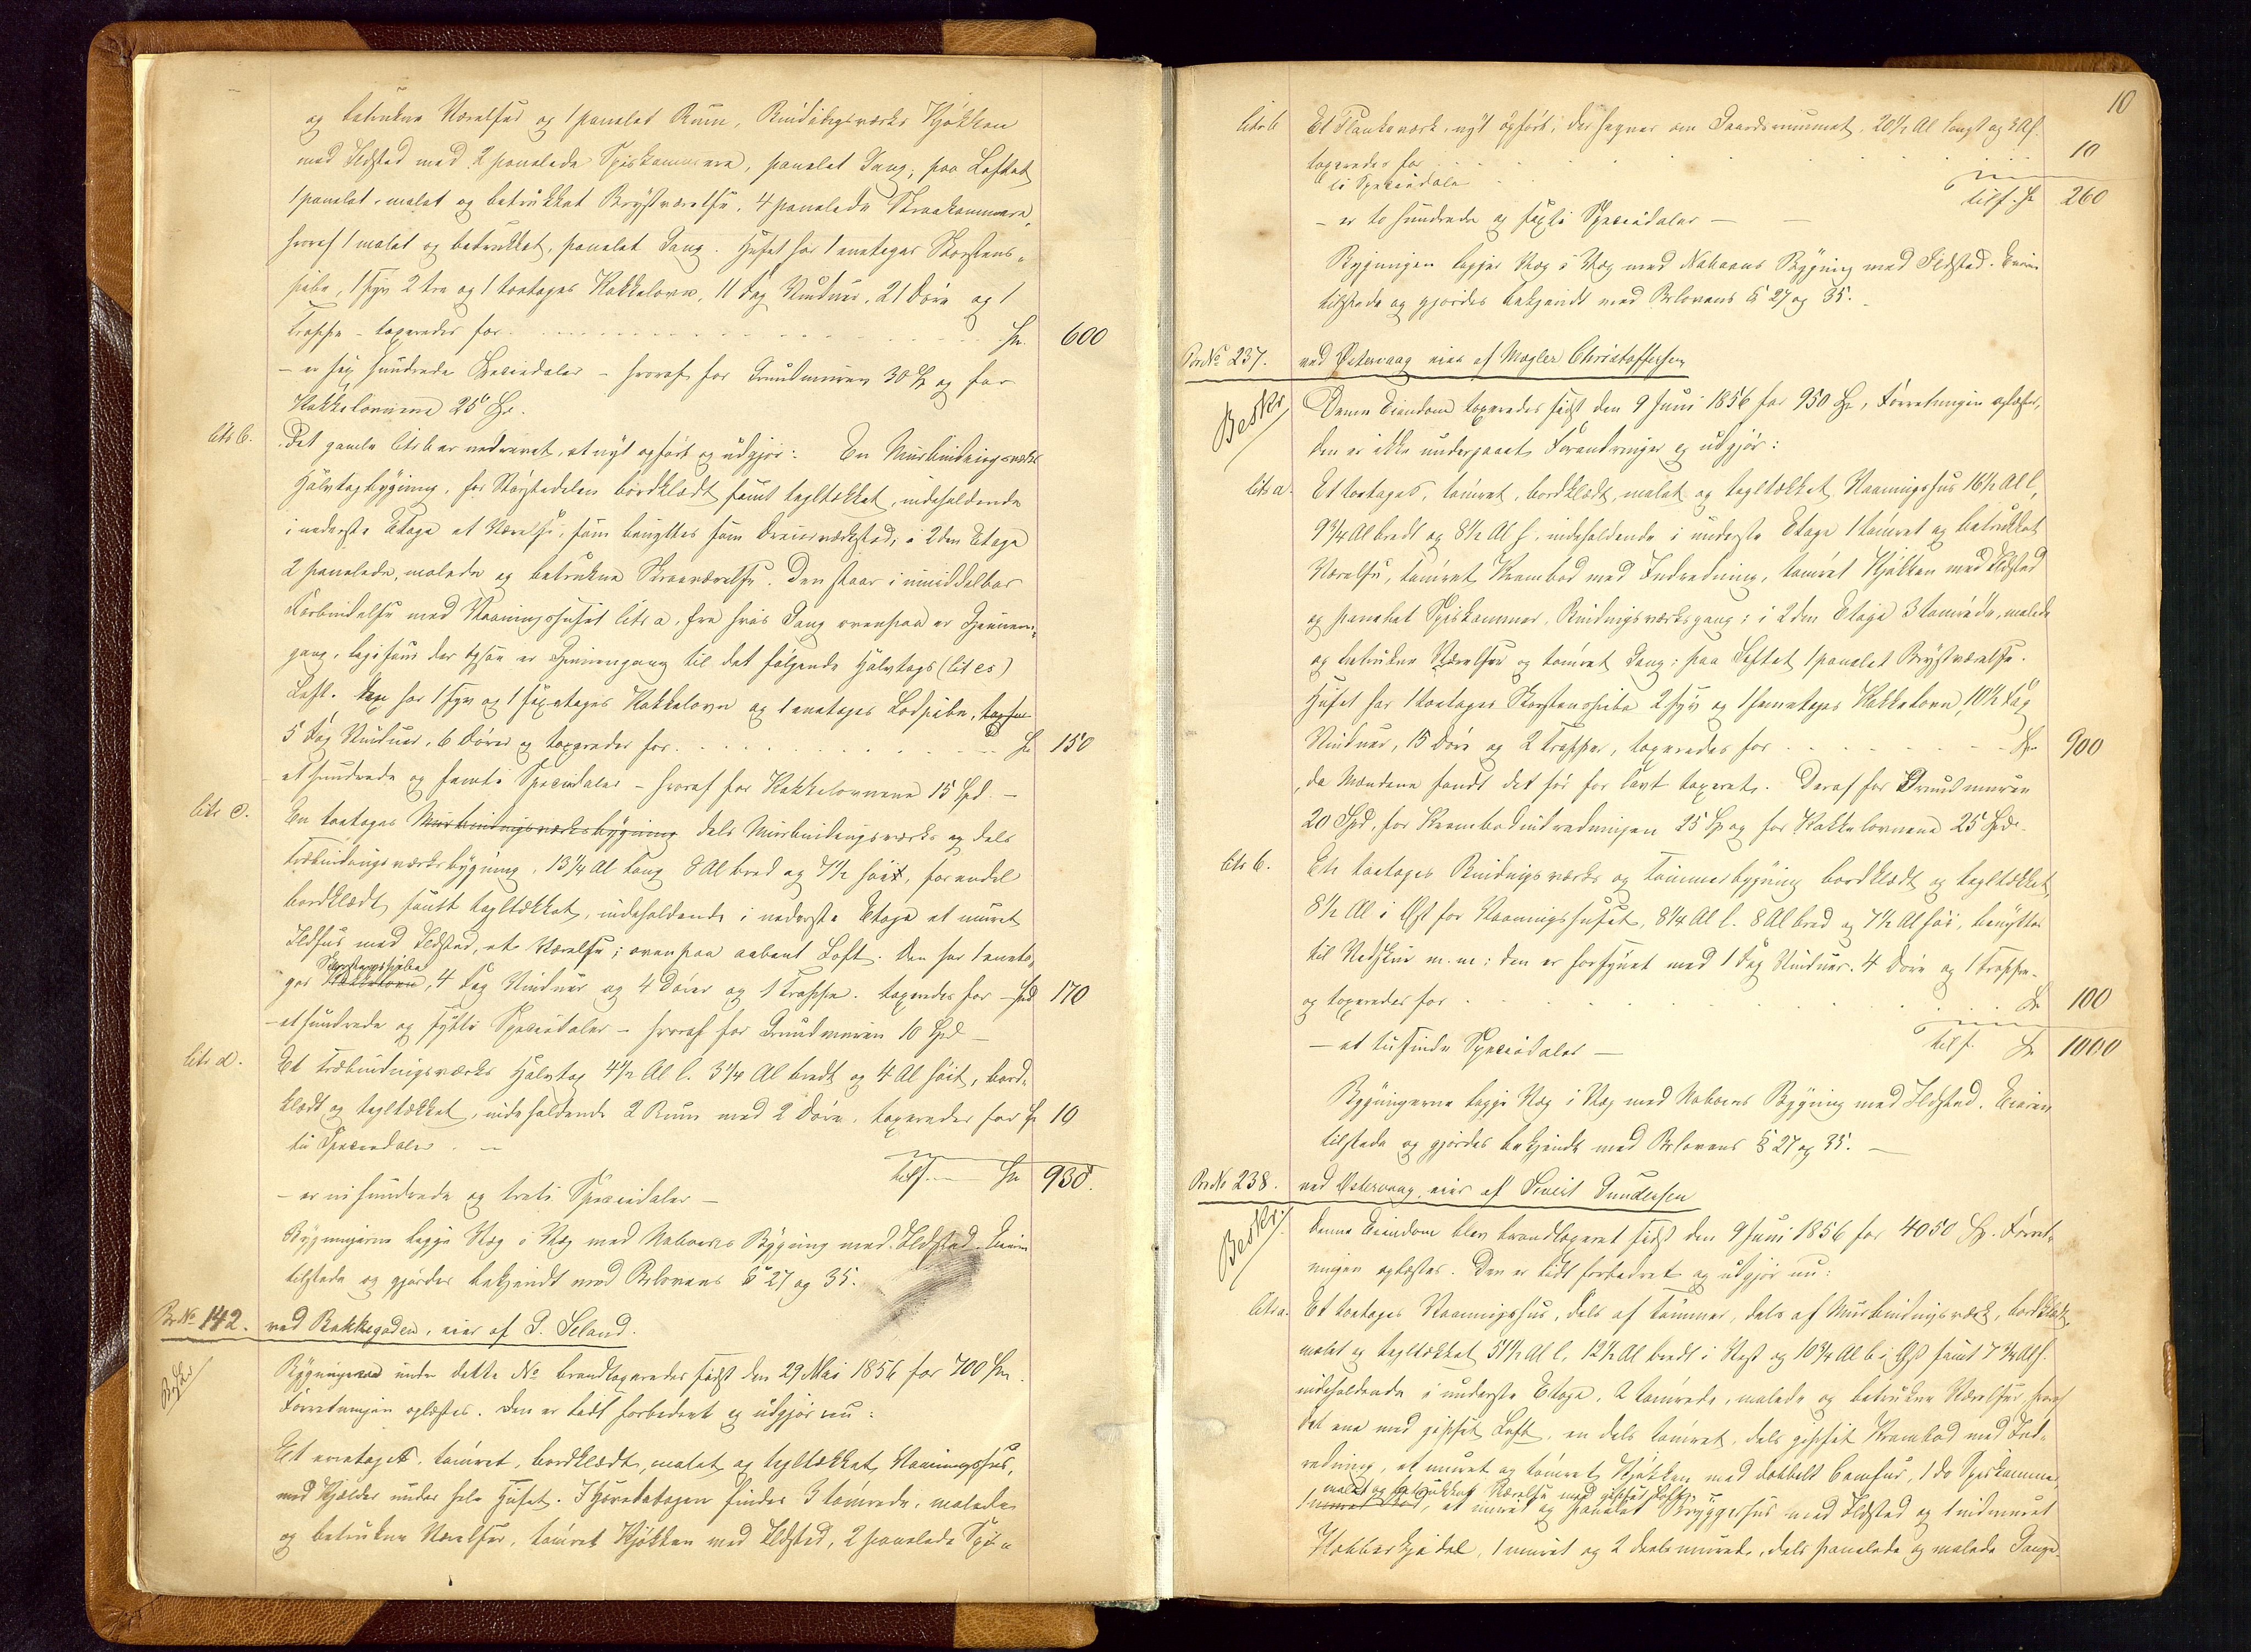 og betrukne Værelser og 1 panelet Rum, Bindingsværks Kjøkken
med Ildsted med 2 panelede Spiskammere, panelet Gang; paa Loftet
1 panelet, malet og betrukket Brystværelse, 4 panelede Skraakammere,
hvoraf 1 malet og betrukket, panelet Gang. Huset har 1 enetages Skorstens-
pibe, 1 fyr 2 tre og 1 toetages Kakkelovn, 11 Fag Vinduer, 21 Døre og 1
Trappe - taxeredes for Sp. 600
- er sex hundrede Speciedaler - hvoraf for Grundmuren 30 Sp og for
Kakkelovnene 25 Sp.
Litr b. Det gamle Litr b er nedrevet, et nyt opført og udgjør: En Murbindingsværks
Halvtagbygning, for Størstedelen bordklædt samt tegltækket, indeholdende
i nederste Etage et Værelse, som benyttes som Dreierværksted; i 2den Etage
2 panelede, malede og betrukne Skraaværelser. Den staar i umiddelbar
Forbindelse med Vaaningshuset Litr a, fra hvis Gang ovenpaa er Gjennem-
gang, ligesom der ogsaa er Gjennemgang til det følgende Halvtags (Lit c s)
Loft. Den har 1 fyr og 1 sexetages Kakkelovn og 1 enetages Lodpibe,
5 Fag Vinduer, 6 Døre og taxeredes for Sp 150
et hundrede og femti Speciedaler - hvoraf for Kakkelovnene 15 Spd. -
Litr c. En toetages Murbindingsværksbygning dels Murbindingsværks og dels
Træbindingsværksbygning, 13¼ Al lang 8 Al bred og 7½ høi, for endel
bordklædt samt tegltækket, indeholdende i nederste Etage et muret
Ildhus med Ildsted, et Værelse; ovenpaa aabent Loft. Den har 1 eneta-
ges Skorstenspibe, 4 Fag Vinduer og 4 Døre og 1 Trappe. taxeredes for - Spd 170
- et hundrede og sytti Speciedaler - hvoraf for Grundmuren 10 Spd -
Litr d. Et Træbindingsværks Halvtag 4½ Al l. 3¼ Al bredt og 4 Al høit, bord-
klædt og tegltækket, indeholdende 2 Rum med 2 Døre. taxeredes for Sp 10
ti Speciedaler. -
tils. - Sp 930.
- er ni hundrede og treti Speciedaler -
Bygningerne ligge Væg i Væg med Naboens Bygning med Ildsted. Eieren
tilstede og gjordes bekjendt med Brlovens § 27 og 35.
Br No 142. ved Bakkegaden, eies af P. Seland.
Beskr Bygningerne under dette No brandtaxeredes sidst den 29 Mai 1856 for 700 Sp.
Forretningen oplæstes. Den er lidt forbedret og udgjør nu:
Et enetages, tømret, bordklædt, malet og tegltækket Vaaningshus,
med Kjælder under hele Huset. I Hovedetagen findes 3 tømrede, malede
og betrukne Værelser, tømret Kjøkken med Ildsted, 2 panelede Spis-
10
Litr b Et Plankeværk, nyt opført, der hegner om Gaardsrummet, 20½ Al langt og 3 Al h.
taxeredes for 10
ti Speciedaler
tils. Sp 260
- er to hundrede og sexti Speciedaler -
Bygningen ligger Væg i Væg med Naboens Bygning med Ildsted. Eieren
tilstede og gjordes bekjendt med Brlovens § 27 og 35. -
Br No 237. ved Østervaag eies af Mægler Christoffersen
Beskr Denne Eiendom taxeredes sidst den 9 Juni 1856 for 950 Sp, Forretningen oplæstes,
den er ikke undergaaet Forandringer og udgjør:
Litr a. Et toetages, tømret, bordklædt, malet og tegltækket Vaaningshus 16½ Al l,
9¾ Al bredt og 8½ Al h, indeholdende i underste Etage 1 tømret og betrukket
Værelse, tømret Krambod med Indredning, tømret Kjøkken med Ildsted
og panelet Spiskammer, Bindingsværksgang; i 2den Etage 3 tømrede, malede
og betrukne Værelser og tømret Gang; paa Loftet 1 panelet Brystværelse.
Huset har 1 toetages Skorstenspibe 2 fyr og 1 femetages Kakkelovn, 10½ Fag
Vinduer, 15 Døre og 2 Trapper, taxeredes for Sp. 900
da Mændene fandt det før for lavt taxeret. Deraf for Grundmuren
20 Spd, for Krambodindredningen 25 Sp og for Kakkelovnene 25 Spd.
Litr b. En toetages Bindingsværks og Tømmerbygning bordklædt og tegltækket,
8½ Al i Øst for Vaaningshuset, 8¼ Al l. 8 Al bred og 7½ Al høi, benyttes
til Vedskur m.m: den er forsynet med 1 Fag Vinduer. 4 Døre og 1 Trappe.
og taxeredes for Sp 100
tils. Sp 1000
- et tusinde Speciedaler -
Bygningerne ligge Væg i Væg med Naboens Bygning med Ildsted. Eieren
tilstede og gjordes bekjendt med Brlovens § 27 og 35. -
Br No 238. ved Østervaag, eies af Sivert Gundersen
Beskr. Denne Eiendom blev brandtaxeret sidst den 9 Juni 1856 for 4050 Sp. Forret-
ningen oplæstes. Den er lidt forbedret og udgjør nu:
Litr a. Et toetages Vaaningshus, dels af Tømmer, dels af Murbindingsværk, bordklædt,
malet og tegltækket 31½ Al l. 12½ Al bredt i Vest og 10¾ Al b i Øst samt 7¾ Al h.
indeholdende i underste Etage, 2 tømrede, malede og betrukne Værelser hvoraf
det ene med gipset Loft, en dels tømret, dels gipset Krambod med Ind-
redning, et muret og tømret Kjøkken med dobbelt Comfur, 1 do Spiskammer,
malet og betrukket Værelse med gipset Loft
1 , et muret og panelet Bryggerhus med Ildsted og indmuret
Kobberkjedel, 1 muret og 2 deels murede, dels panelede og malede Gange.